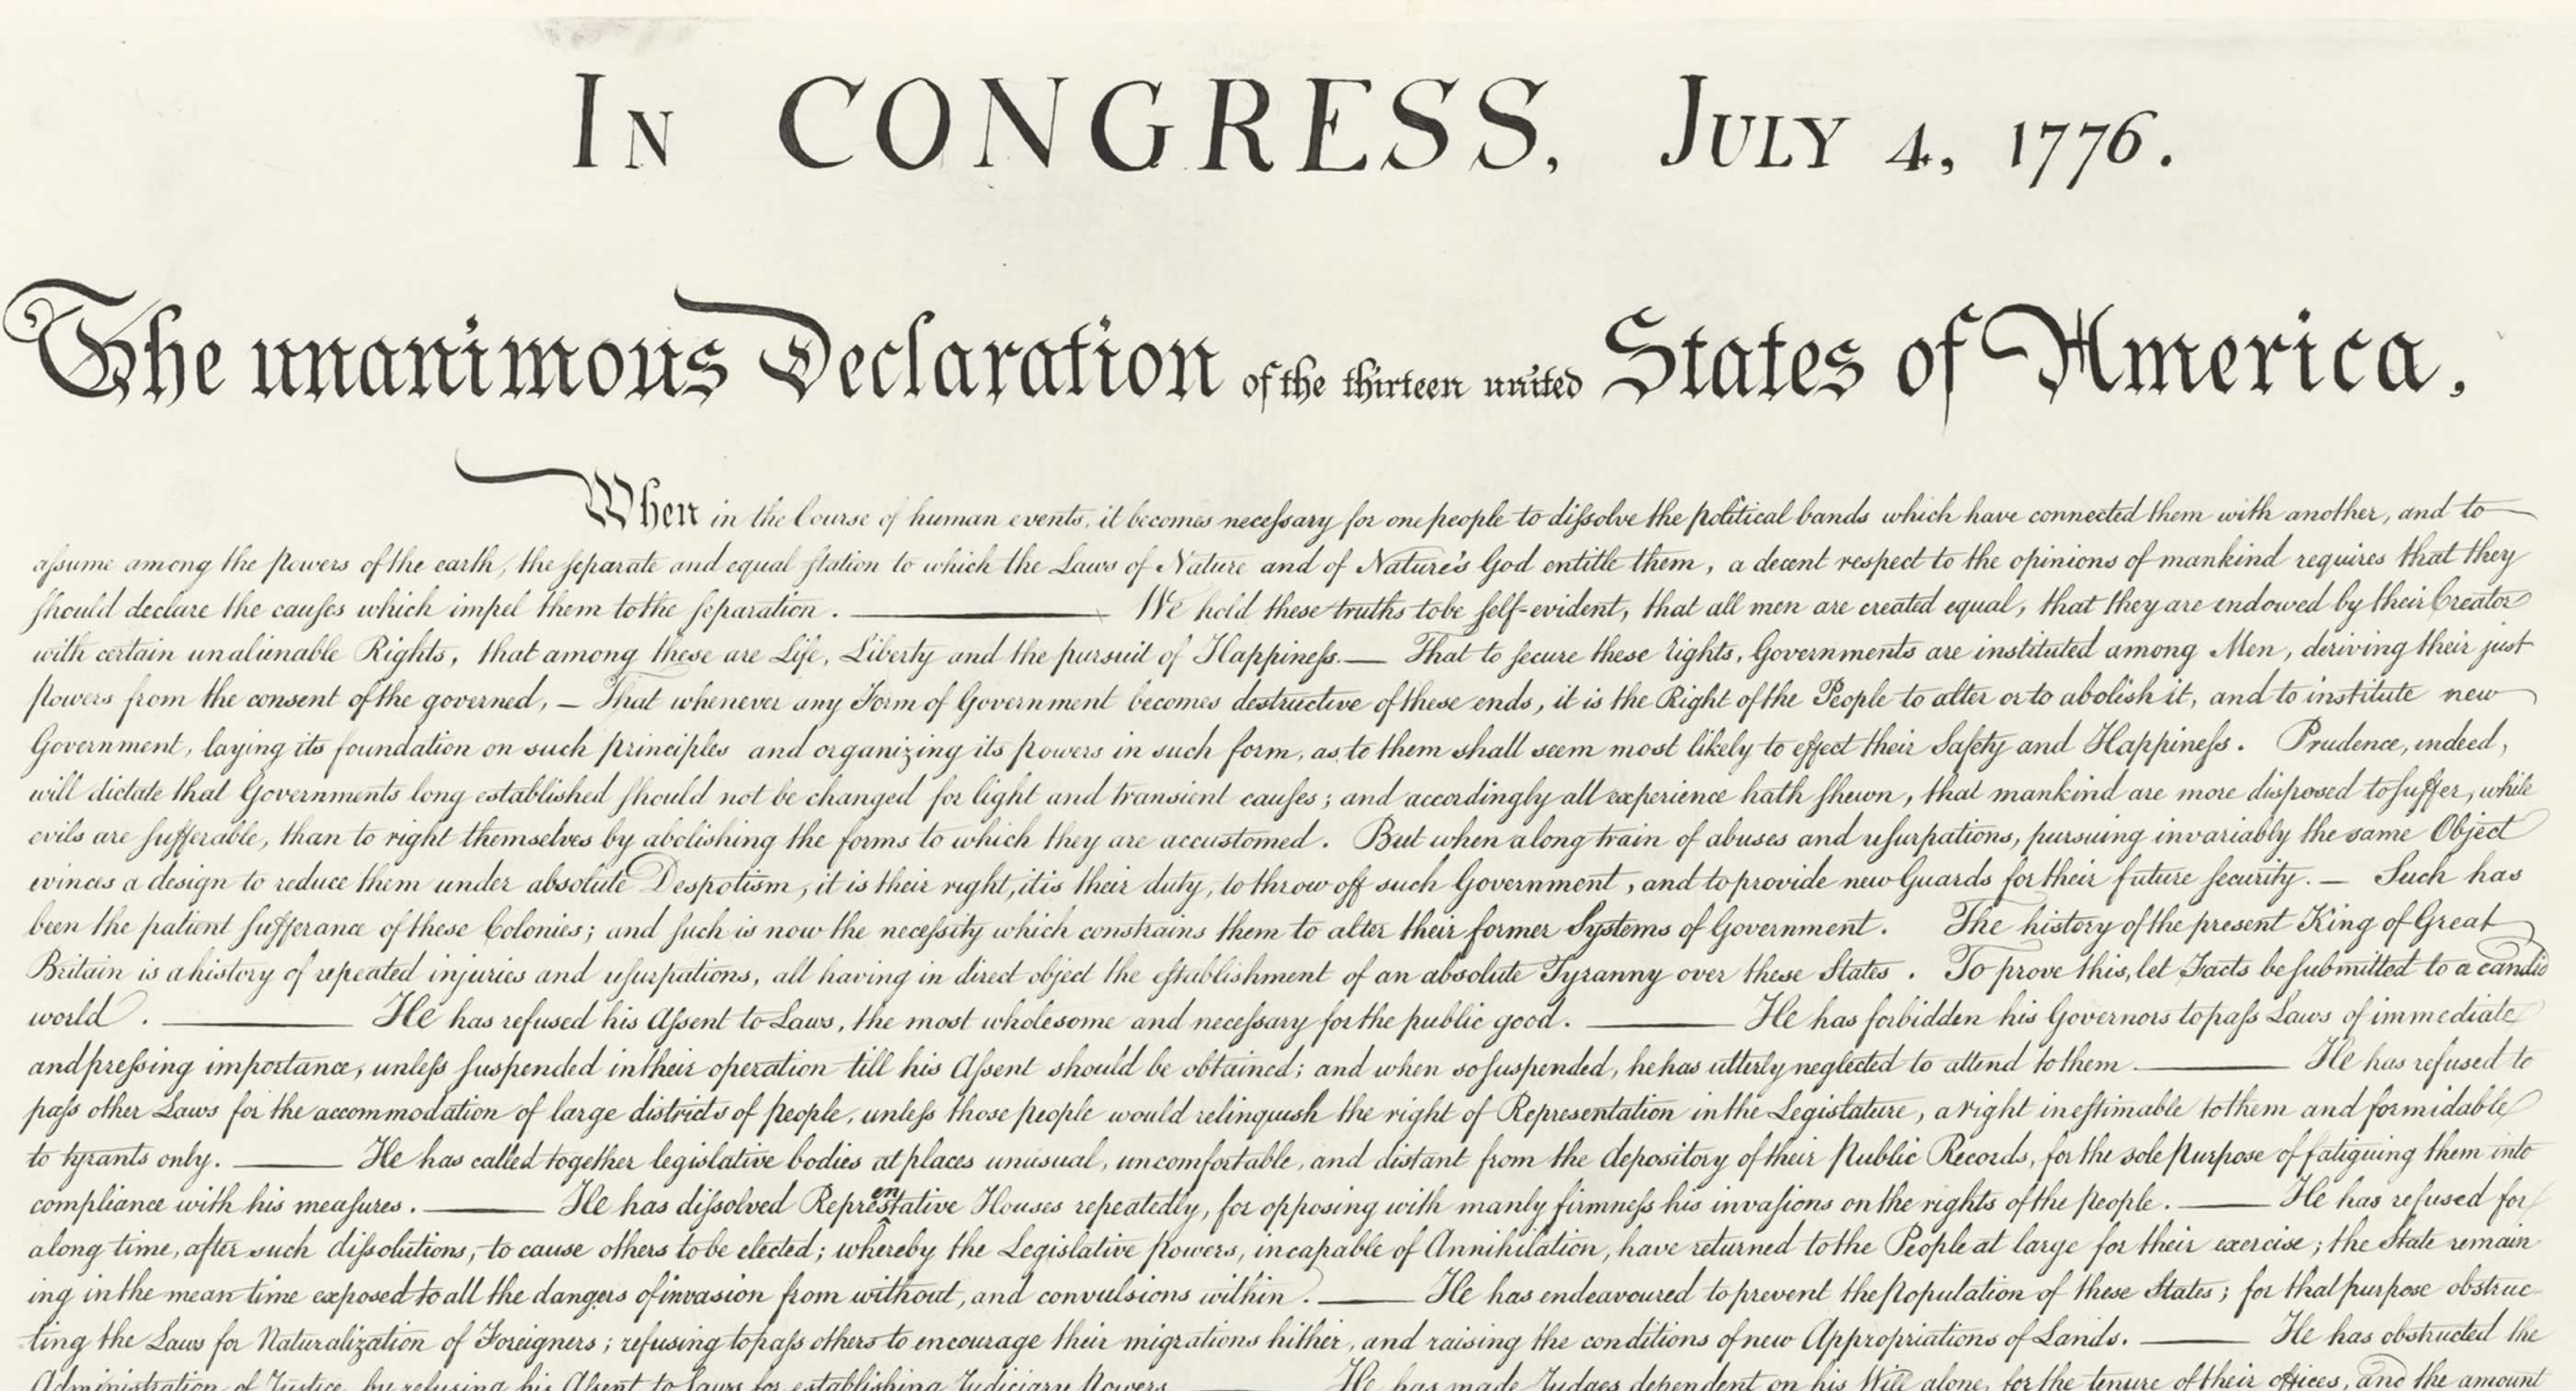 In CONGRESS, July 4, 1776.
The unanimous Declaration of the thirteen united States of America,
When in the Course of human events, it becomes necessary for one people to dissolve the political bands which have connected them with another, and to
assume among the powers of the earth, the separate and equal station to which the Laws of Nature and of Nature's God entitle them, a decent respect to the opinions of mankind requires that they
should declare the causes which impel them to the separation. — We hold these truths to be self-evident, that all men are created equal, that they are endowed by their Creator
with certain unalienable Rights, that among these are Life, Liberty and the pursuit of Happiness. — That to secure these rights, Governments are instituted among Men, deriving their just
powers from the consent of the governed, — That whenever any Form of Government becomes destructive of these ends, it is the Right of the People to alter or to abolish it, and to institute new
Government, laying its foundation on such principles and organizing its powers in such form, as to them shall seem most likely to effect their Safety and Happiness. Prudence, indeed,
will dictate that Governments long established should not be changed for light and transient causes; and accordingly all experience hath shewn, that mankind are more disposed to suffer, while
evils are sufferable, than to right themselves by abolishing the forms to which they are accustomed. But when a long train of abuses and usurpations, pursuing invariably the same Object
evinces a design to reduce them under absolute Despotism, it is their right, it is their duty, to throw off such Government, and to provide new Guards for their future security. — Such has
been the patient sufferance of these Colonies; and such is now the necessity which constrains them to alter their former Systems of Government. The history of the present King of Great
Britain is a history of repeated injuries and usurpations, all having in direct object the establishment of an absolute Tyranny over these States. To prove this, let Facts be submitted to a candid
world. — He has refused his Assent to Laws, the most wholesome and necessary for the public good. — He has forbidden his Governors to pass Laws of immediate
and pressing importance, unless suspended in their operation till his Assent should be obtained; and when so suspended, he has utterly neglected to attend to them. — He has refused to
pass other Laws for the accommodation of large districts of people, unless those people would relinquish the right of Representation in the Legislature, a right inestimable to them and formidable
to tyrants only. — He has called together legislative bodies at places unusual, uncomfortable, and distant from the depository of their Public Records, for the sole purpose of fatiguing them into
compliance with his measures. — He has dissolved Representative Houses repeatedly, for opposing with manly firmness his invasions on the rights of the people. — He has refused for
a long time, after such dissolutions, to cause others to be elected; whereby the Legislative powers, incapable of Annihilation, have returned to the People at large for their exercise; the State remain
ing in the mean time exposed to all the dangers of invasion from without, and convulsions within. — He has endeavoured to prevent the population of these States; for that purpose obstruc-
ting the Laws for Naturalization of Foreigners; refusing to pass others to encourage their migrations hither, and raising the conditions of new Appropriations of Lands. — He has obstructed the
Administration of Justice, by refusing his Assent to Laws for establishing Judiciary Powers. — He has made Judges dependent on his Will alone, for the tenure of their offices, and the amount